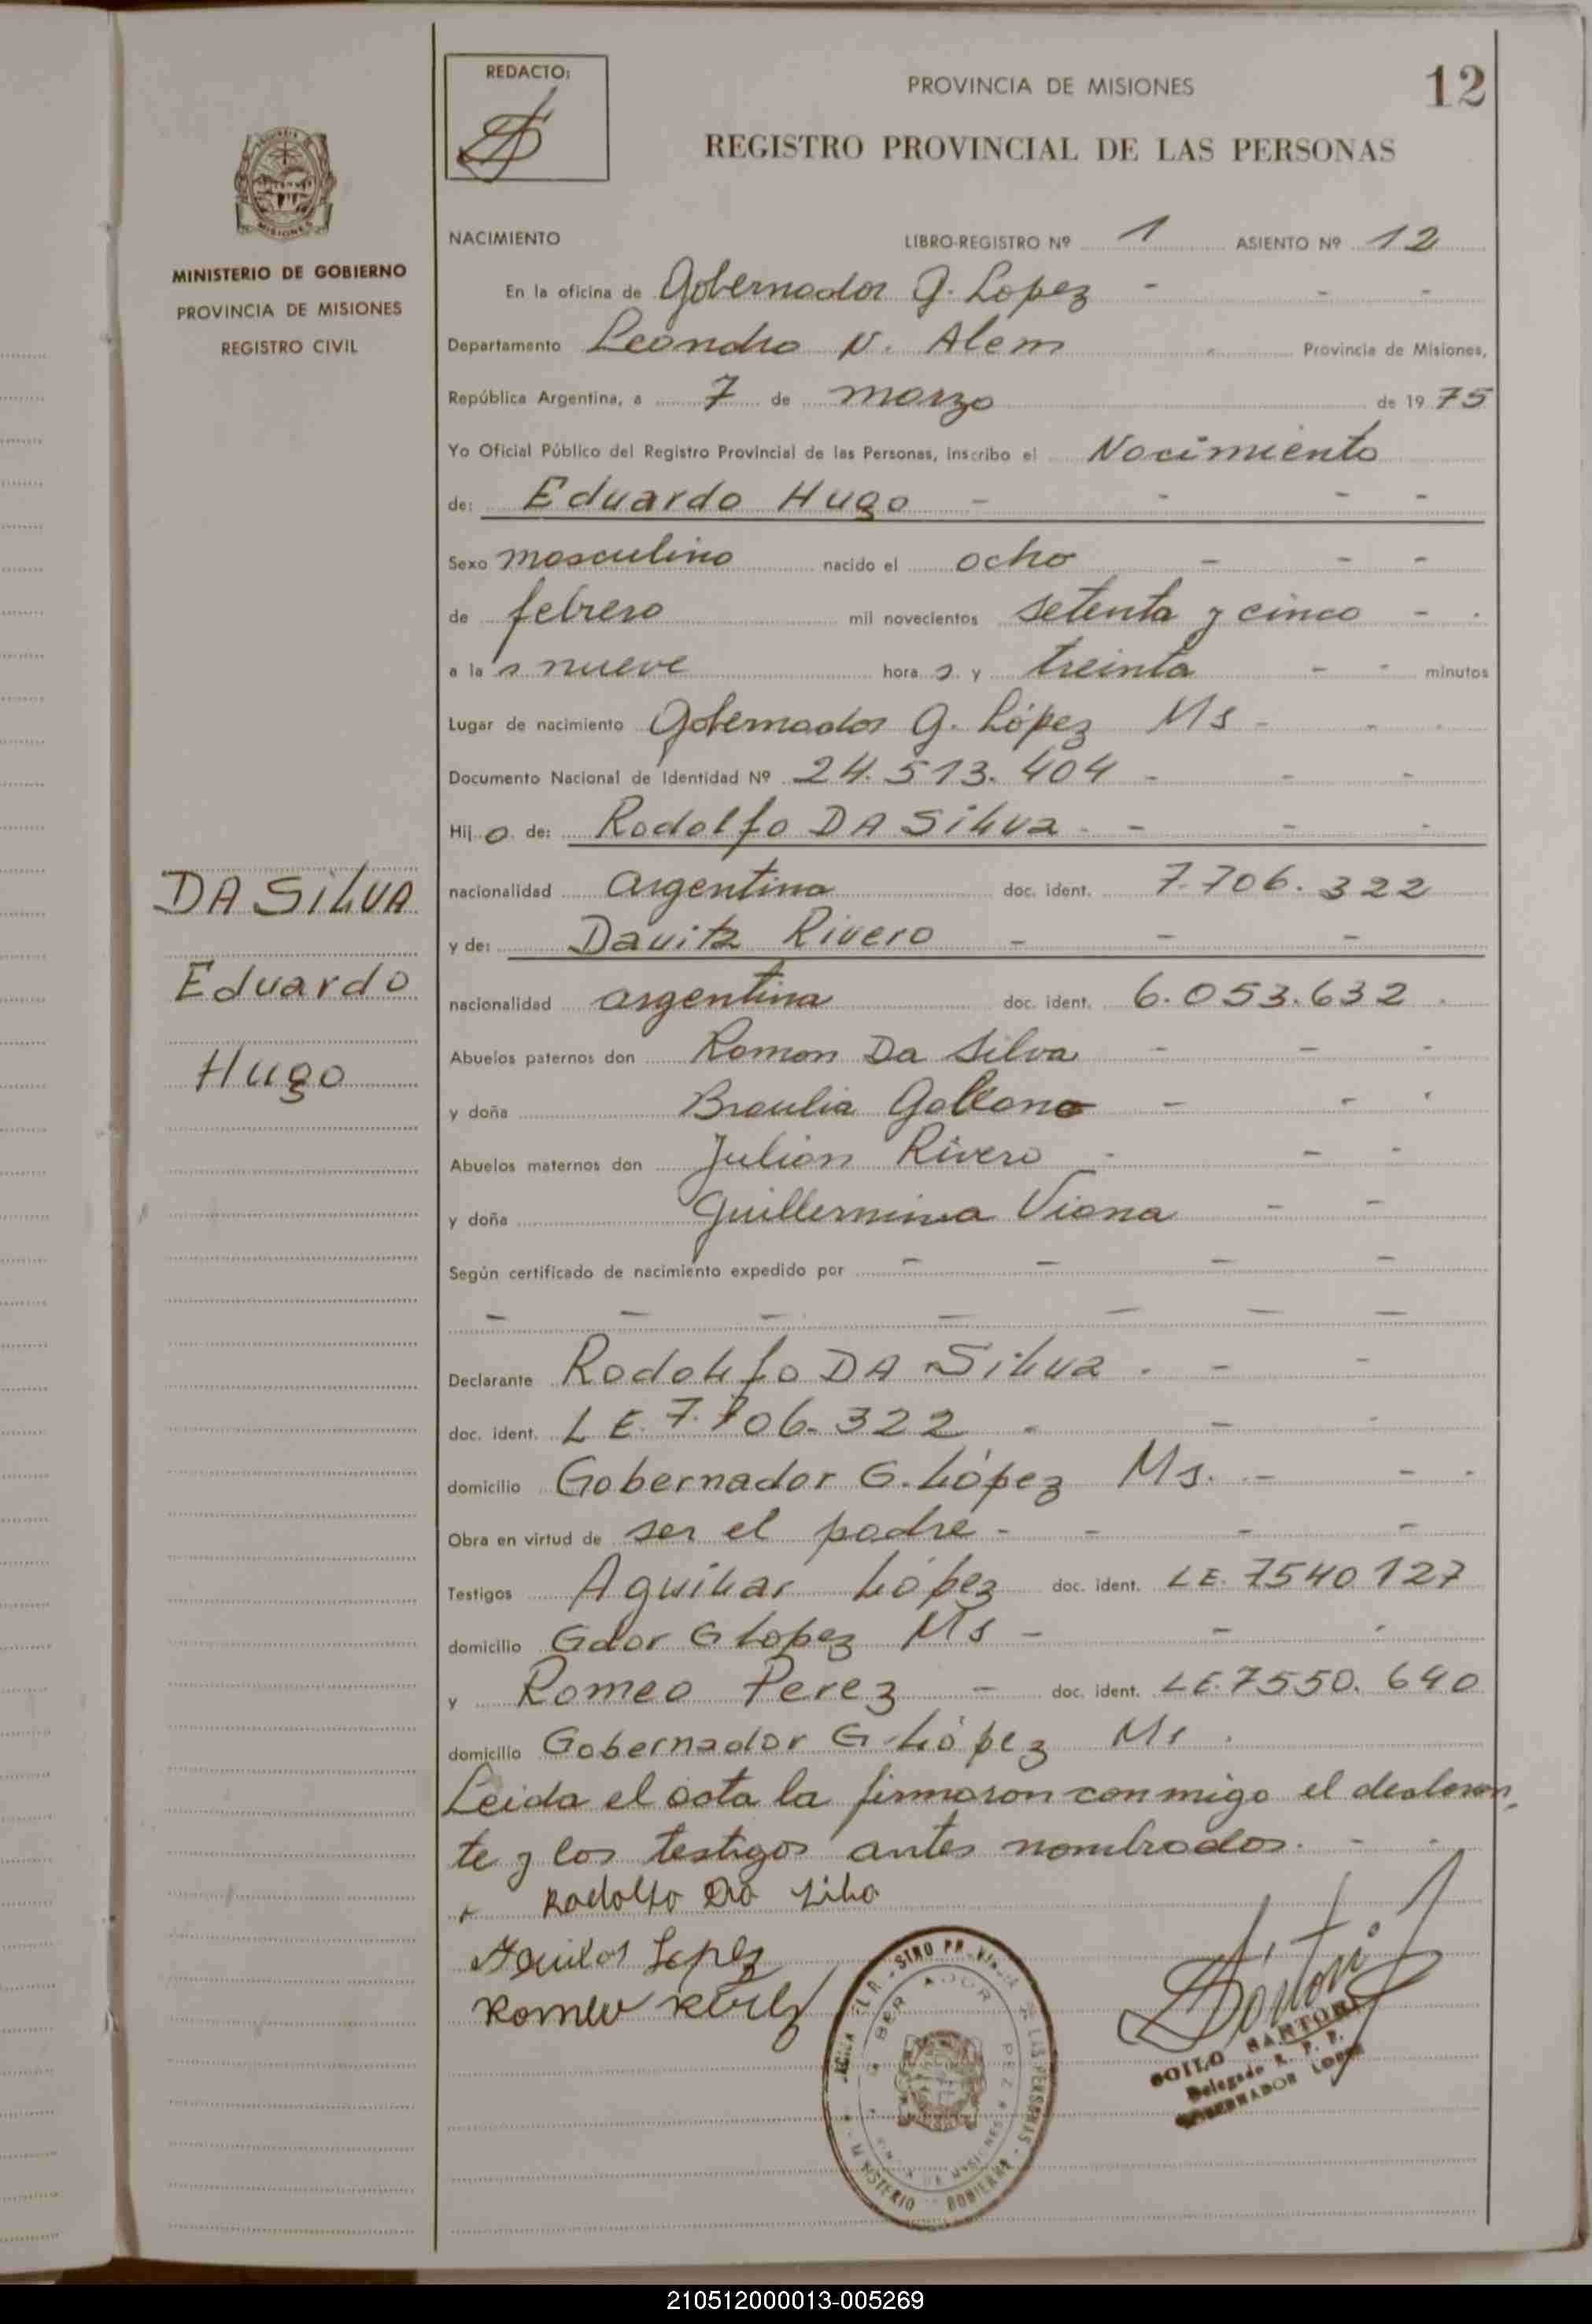 REDACTO:
PROVINCIA DE MISIONES
12
REGISTRO PROVINCIAL DE LAS PERSONAS
MISIONES
MINISTERIO DE GOBIERNO
PROVINCIA DE MISIONES
REGISTRO CIVIL
NACIMIENTO LIBRO-REGISTRO Nº 1 ASIENTO Nº 12
En la oficina de Gobernador G. Lopez - - -
Departamento Leandro N. Alem Provincia de Misiones,
República Argentina, a 7 de marzo de 19 75
Yo Oficial Público del Registro Provincial de las Personas, inscribo el Nacimiento
de: Eduardo Hugo - - - -
Sexo masculino nacido el ocho - - -
de febrero mil novecientos setenta y cinco - -
a la s nueve hora s y treinta - - minutos
Lugar de nacimiento Gobernador G. López Ms - - -
Documento Nacional de Identidad Nº 24.513.404 - - -
Hij o de: Rodolfo DA Silva - - - -
DA SilVA
nacionalidad argentina doc. ident. 7.706.322
y de: Davita Rivero - - -
Eduardo
nacionalidad argentina doc. ident. 6.053.632 -
Abuelos paternos don Ramon Da Silva - - -
Hugo
y doña Braulia Galeano - - -
Abuelos maternos don Julian Rivero - - -
y doña Guillermina Viana - -
Según certificado de nacimiento expedido por - - - -
- - - - - - -
Declarante Rodolfo DA Silva - - -
doc. ident. L E. 7.706.322 - - -
domicilio Gobernador G. López Ms. - - -
Obra en virtud de ser el padre - - - -
Testigos Aguilar López doc. ident. LE. 7540127
domicilio Gdor G Lopez Ms - - -
y Romeo Perez - doc. ident. LE. 7550.640
domicilio Gobernador G López Ms .
Leida el acta la firmaron conmigo el declaran-
te y los testigos antes nombrados. - -
Rodolfo Da Silva
Aguilar Lopez
Romeo
SOILO SARTORI
Delegado R. P. P.
GOBERNADOR LOPEZ
210512000013-005269